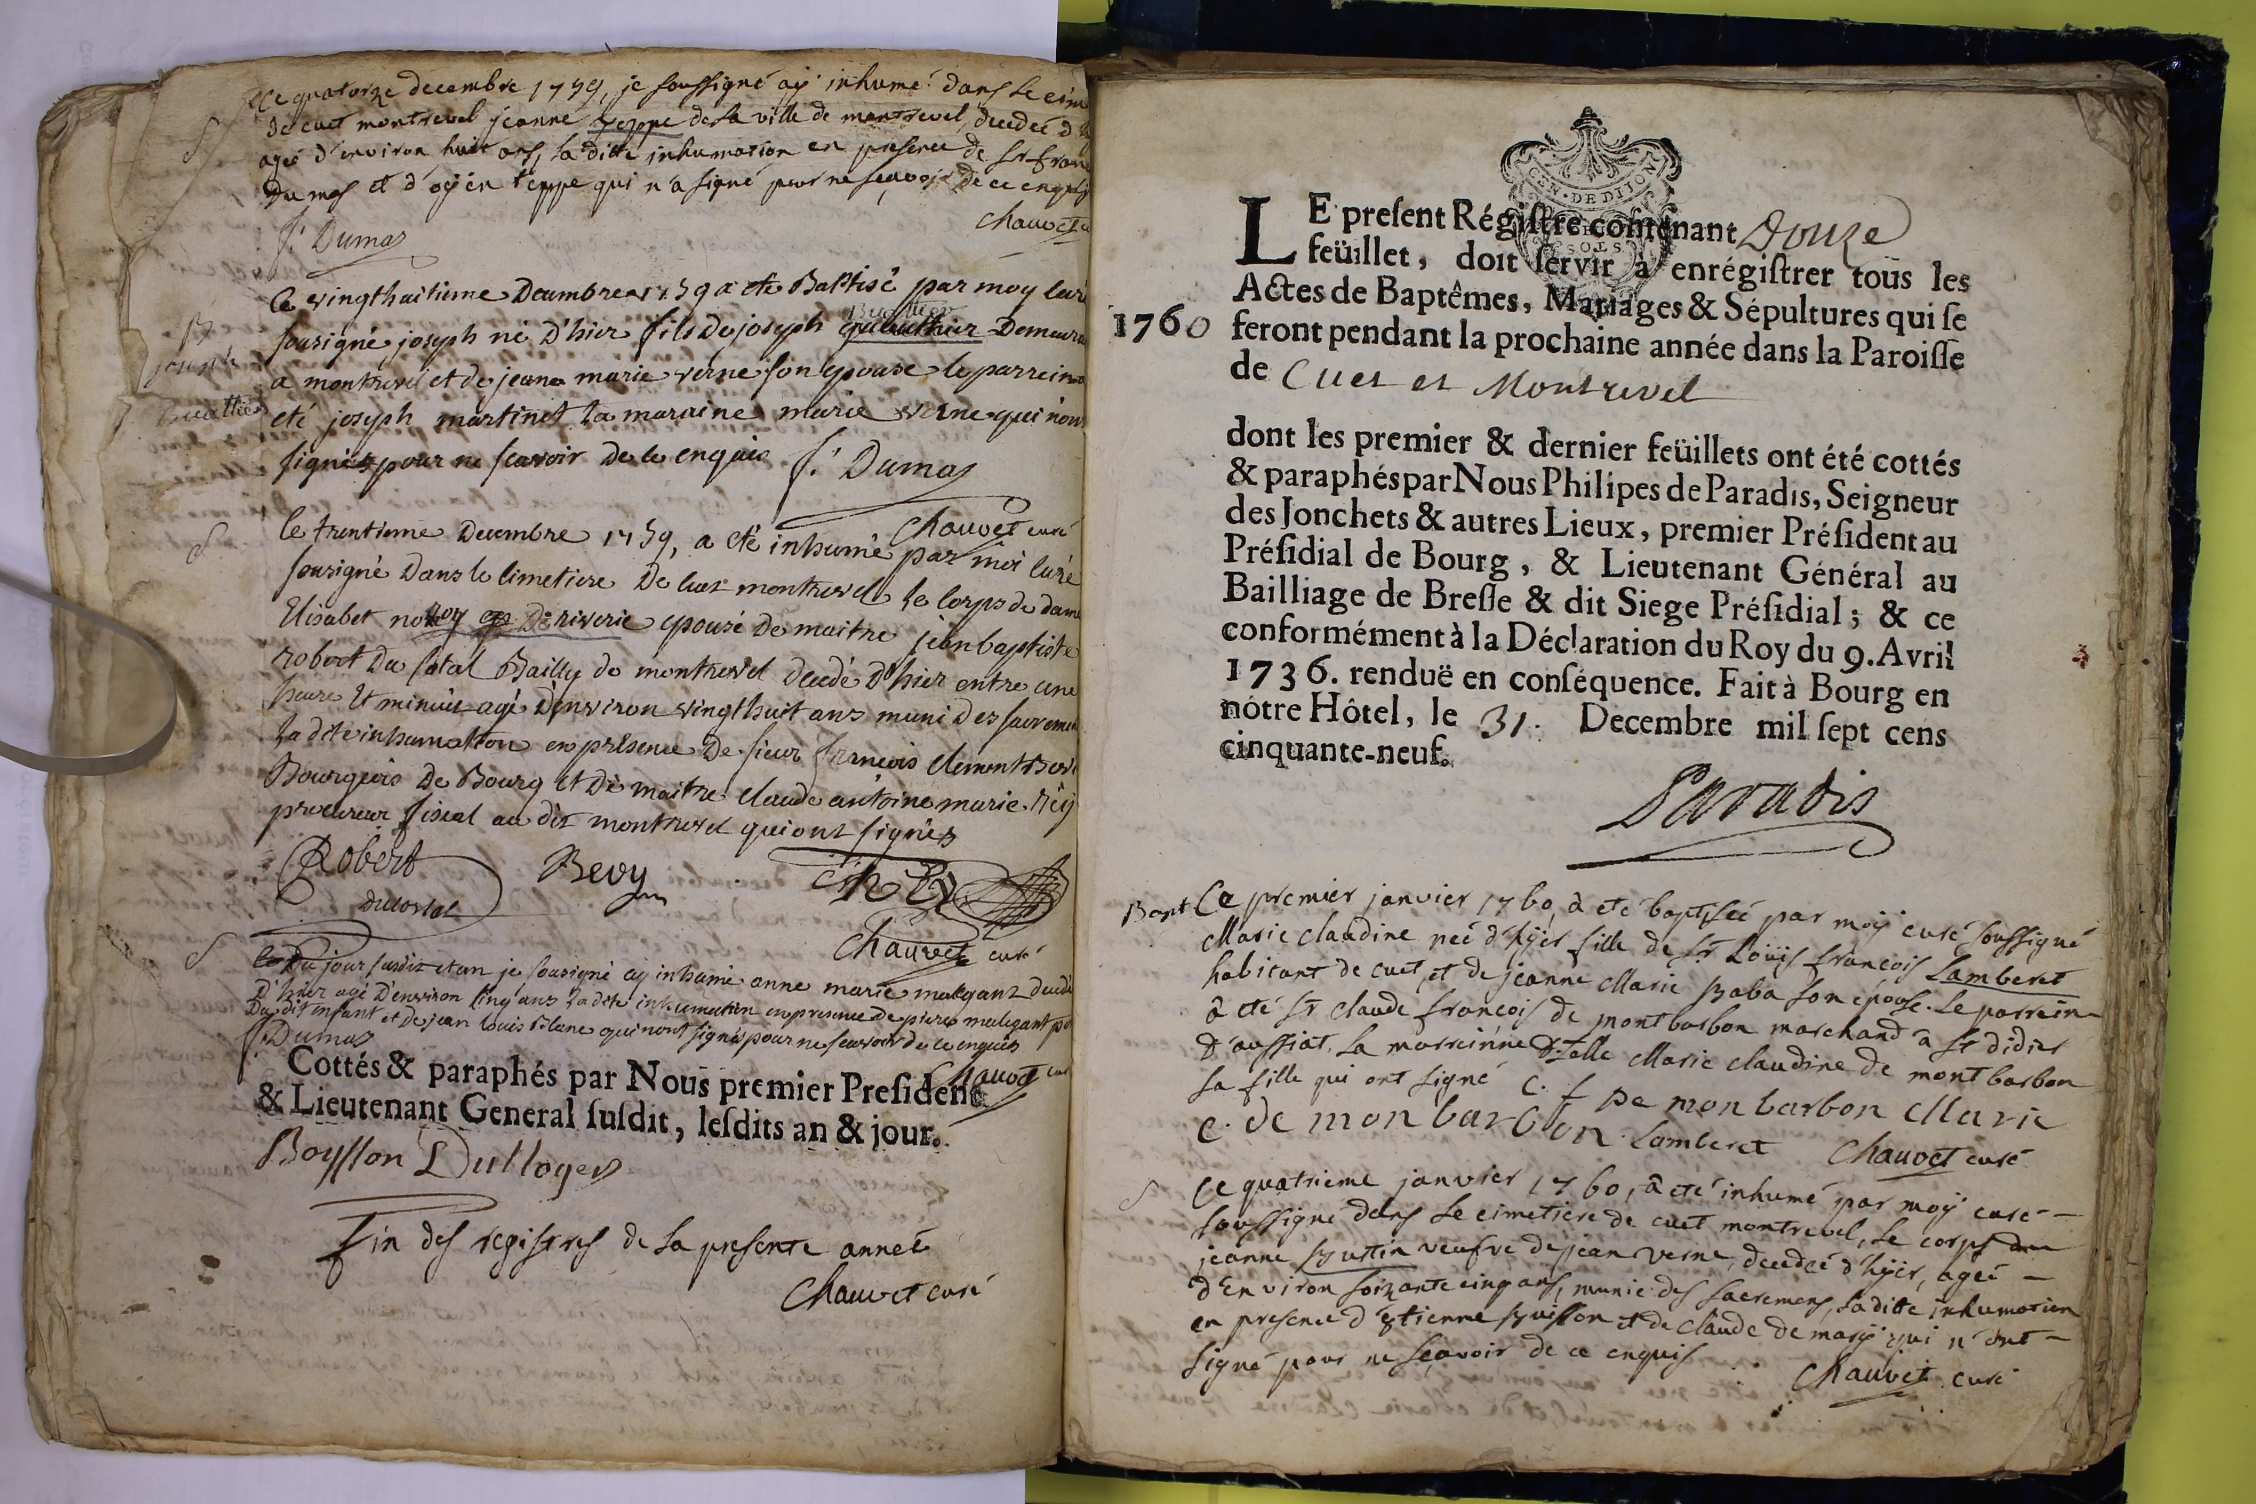 Ce quatorze decembre 1759, je soussigné aÿ inhumé dans le cim
de cuet montrevel jeanne teppe de la ville de montrevel, decedeé d'
ageé d'environ huit ans, la ditte inhumation en presence de Sr fran
Dumas et d'oÿen teppe qui n'a signé pour ne sçavoir de ce enquis
chauvet
f. Dumas
B
joseph
Buatier
Le vingthuitieme Decembre 1759 a ete Baptisé par moy curé
sousigné joseph né D'hier fils de joseph Demeurant
a montrevel et de jeane marie verne son epouse le parrein a
eté joseph martinet la maraine marie verne qui n'ont
signés pour ne scavoir de ce enquis f. Dumas
Chauvet curé
S
le trentieme Decembre 1759, a eté inhumé par moi curé
sousigné Dans le cimetiere De cuet montrevel le corps de dame
Elisabet De riverie epouse De maitre jean baptiste
robert Bailly de montrevel decedé D'hier entre une
heure Et minuit agé D'environ vingt huit ans muni Des sacremens
la dite inhumation en présence De sieur François clement
Bourgeois De Bourg et De maitre claude antoine marie
procureur fiscal au dit montrevel qui ont signés
Robert
Bevy
Chauvet curé
S
Du jour susdit et an je sousigné ay inhumé anne marie malegant decedé
D'hier agé D'environ cinq ans la dite inhumation en presence De piere malegant
Du dit enfant et De jean louis blanc qui n'ont signés pour ne scavoir de ce enquis
f. Dumas
Chauvet curé
Cottés & paraphés par Nous premier President
& Lieutenant General susdit, lesdits an & jour.
Fin des registres de la presente anneé
Chauvet curé
GEN. DE DIJON
LE present Régistre contenant Douze
feüillet, doit servir à enrégistrer tous les
Actes de Baptêmes, Mariages & Sépultures qui se
1760
feront pendant la prochaine année dans la Paroisse
de Cuet et Montrevel
dont les premier & dernier feüillets ont été cottés
& paraphés par Nous Philipes de Paradis, Seigneur
des Jonchets & autres Lieux, premier Président au
Présidial de Bourg, & Lieutenant Général au
Bailliage de Bresse & dit Siege Présidial; & ce
conformément à la Déclaration du Roy du 9. Avril
1736. renduë en conséquence. Fait à Bourg en
nôtre Hôtel, le 31. Decembre mil sept cens
cinquante-neuf.
Paradis
Bapt
Ce premier janvier 1760, a eté baptiseé par moÿ curé soussigné
Marie claudine neé d'hÿer fille de Sr Loüis françois Lamberet
habitant de cuet, et de jeanne Marie Baba son épouse. Le parrein
â eté Sr claude françois de montbarbon marchand â St didier
d'aussiat, La marreinne Dzelle Marie claudine de montbarbon
sa fille qui ont signé C. f De monbarbon Marie
C. De monbarbon Lamberet Chauvet curé
S
Ce quatrieme janvier 1760, â eté inhumé par moÿ curé
soussigné dans le cimetiere de cuet montrevel, le corps de
jeanne veufve de jean verne, decedeé d'hÿer, ageé
d'Environ soixante cinq ans, munie des sacremens, la ditte inhumation
en presence d'Etienne Buisson et de claude de marÿ qui n'ont
signé pour ne sçavoir de ce enquis
Chauvet curé